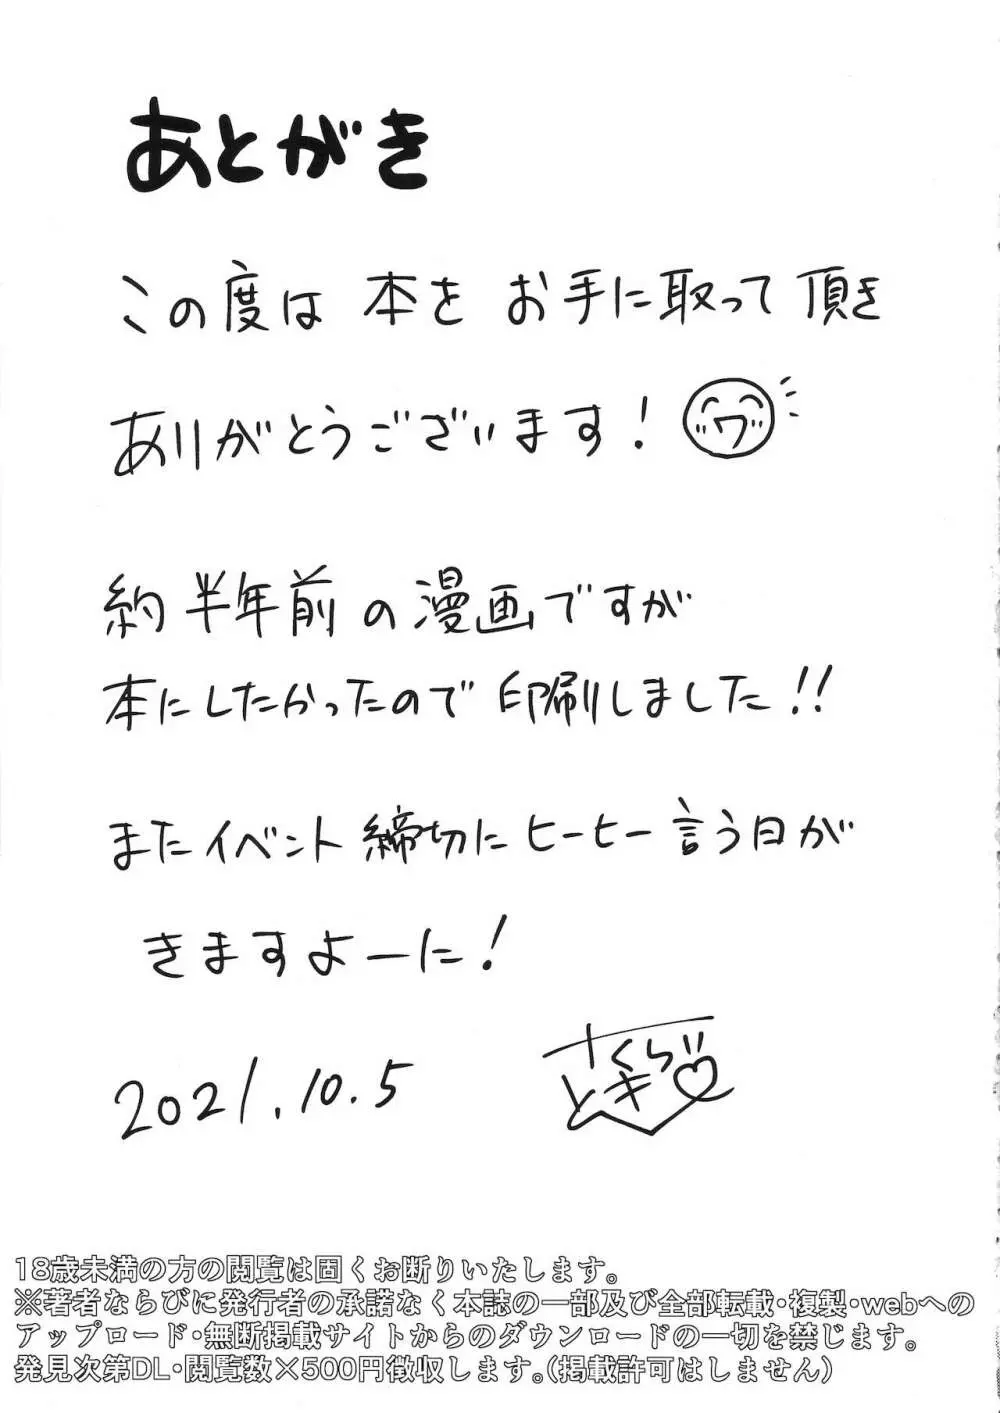 あとがき
この度は 本を お手に取って 頂き
ありがとうございます!
約半年前の漫画ですが
本にしたかったので 印刷しました!!
またイベント締切にヒーヒー言う日が
きますよーに!
2021.10.5
さくら
とき
18歳未満の方の閲覧は固くお断りいたします。
※著者ならびに発行者の承諾なく本誌の一部及び全部転載・複製・webへの
アップロード・無断掲載サイトからのダウンロードの一切を禁じます。
発見次第DL・閲覧数×500円徴収します。(掲載許可はしません)